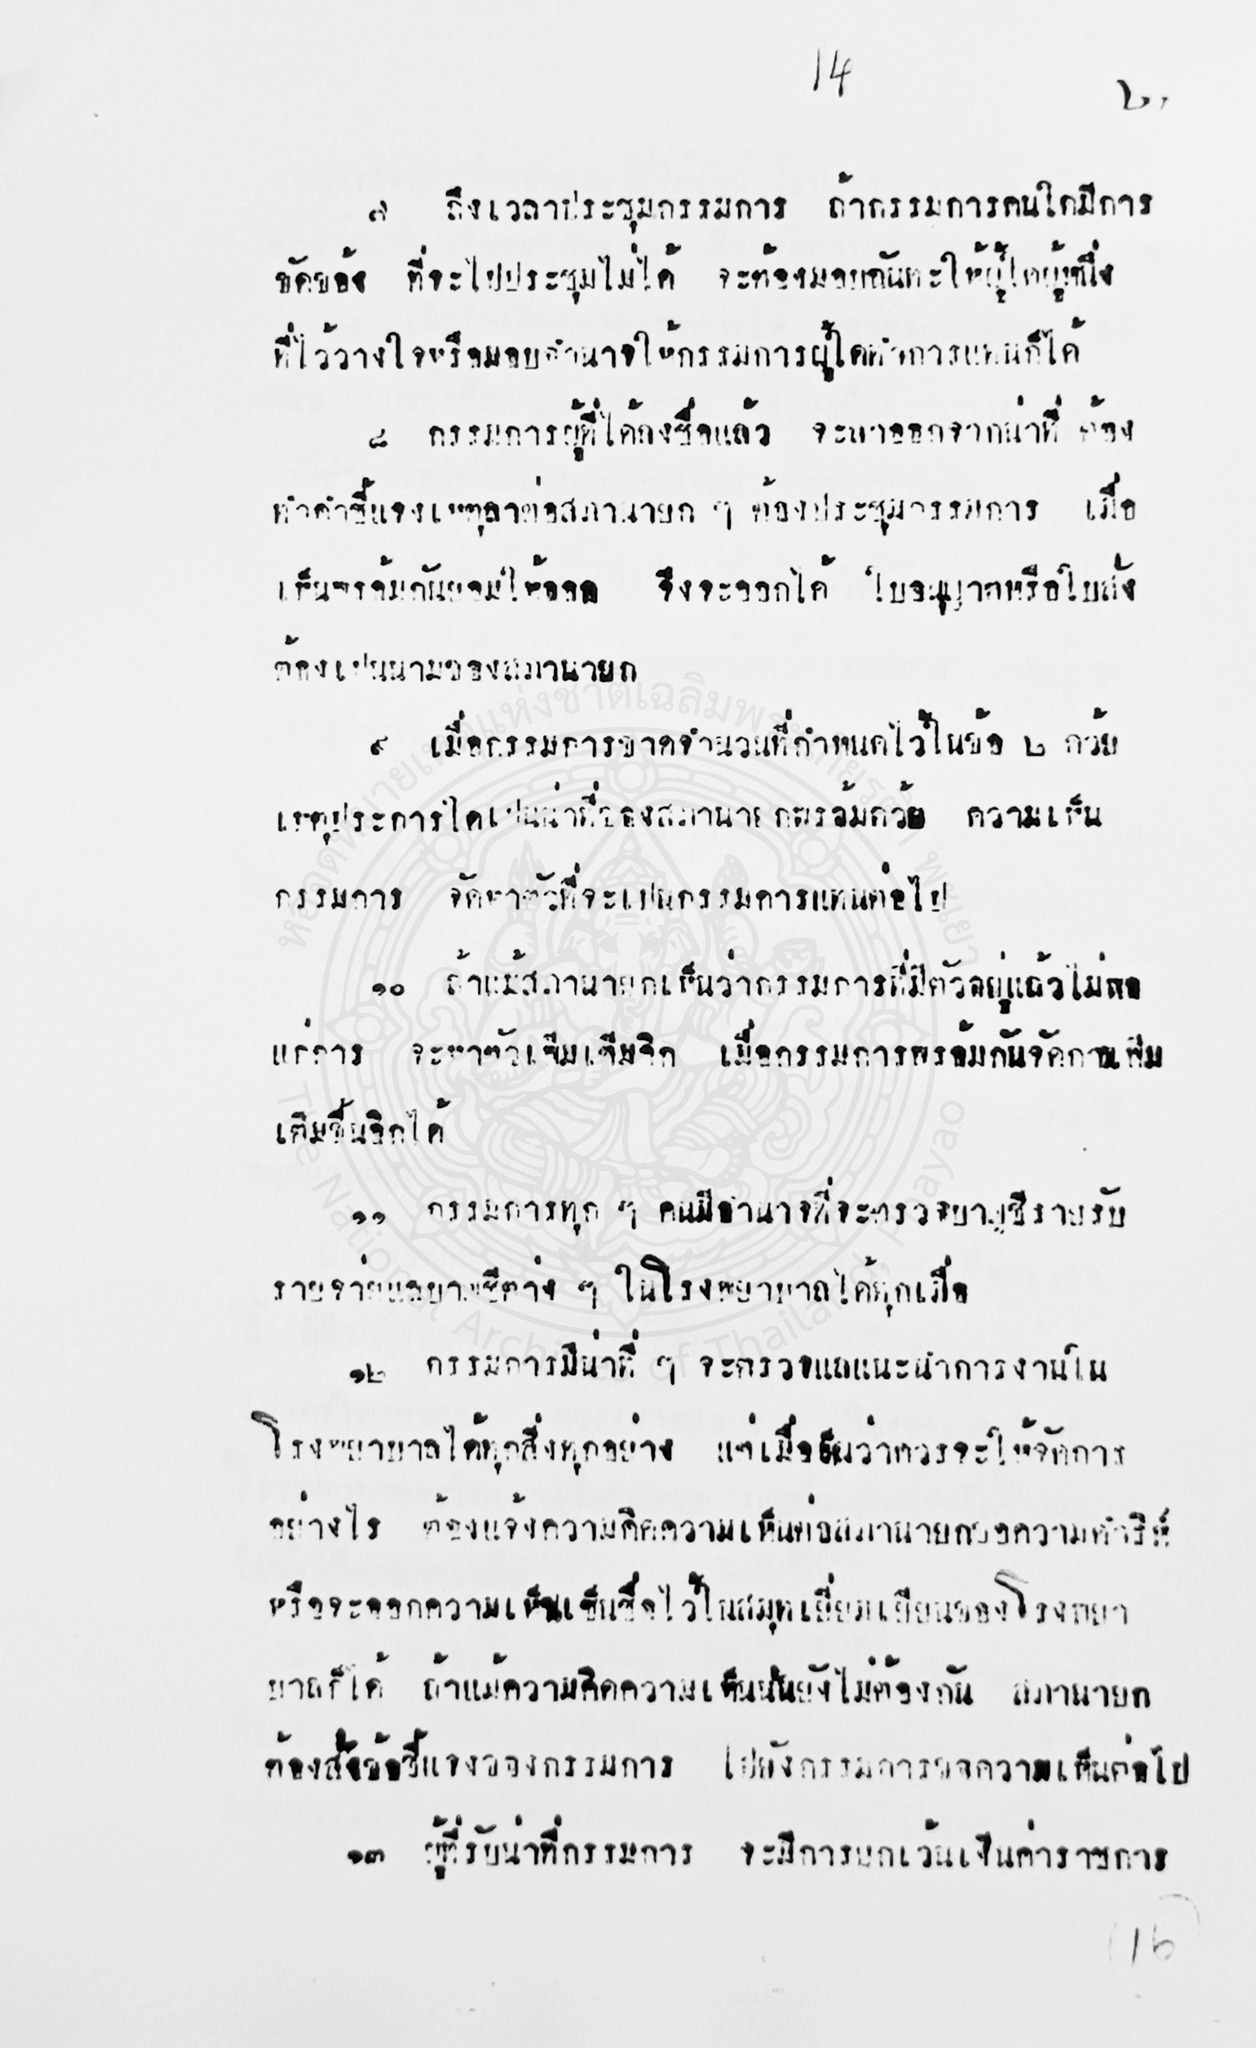 14
๒
๗ ถึงเวลาประชุมกรรมการ ถ้ากรรมการคนใดมีการ
ขัดข้อง ที่จะไปประชุมไม่ได้ จะต้องมอบฉันทะให้ผู้ใดผู้หนึ่ง
ที่ไว้วางใจหรือมอบอำนาจให้กรรมการผู้ใดทำการแทนก็ได้
๘ กรรมการผู้ที่ได้ลงชื่อแล้ว จะลาออกจากน่าที่ ต้อง
ทำคำชี้แจงเหตุลาต่อสภานายก ๆ ต้องประชุมกรรมการ เมื่อ
เห็นพร้อมกันยอมให้ออก จึงจะออกได้ ใบอนุญาตหรือใบสั่ง
ต้องเปนนามของสภานายก
๙ เมื่อกรรมการขาดจำนวนที่กำหนดไว้ในข้อ ๒ ด้วย
เหตุประการใดเปนน่าที่ของสภานายกพร้อมด้วย ความเห็น
กรรมการ จัดหาตัวที่จะเปนกรรมการแทนต่อไป
๑๐ ถ้าแม้สภานายกเห็นว่ากรรมการที่มีตัวอยู่แล้วไม่พอ
แก่การ จะหาตัวเพิ่มเติมอิก เมื่อกรรมการพร้อมกันจัดการเพิ่ม
เติมขึ้นอิกได้
๑๑ กรรมการทุก ๆ คนมีอำนาจที่จะตรวจบาญชีรายรับ
รายจ่ายแลบาญชีต่าง ๆ ในโรงพยาบาลได้ทุกเมื่อ
๑๒ กรรมการมีน่าที่ ๆ จะตรวจแลแนะนำการงานใน
โรงพยาบาลได้ทุกสิ่งทุกอย่าง แต่เมื่อเห็นว่าควรจะให้จัดการ
อย่างไร ต้องแจ้งความคิดความเห็นต่อสภานายกขอความดำริห์
หรือจะออกความเห็นเซ็นชื่อไว้ในสมุทเยี่ยมเยียนของโรงพยา
บาลก็ได้ ถ้าแม้ความคิดความเห็นนั้นยังไม่ต้องกัน สภานายก
ต้องส่งข้อชี้แจงของกรรมการ ไปยังกรรมการขอความเห็นต่อไป
๑๓ ผู้ที่รับน่าที่กรรมการ จะมีการยกเว้นเงินค่าราชการ
16
หอจดหมายเหตุแห่งชาติเฉลิมพระเกียรติ พะเยา
The National Archives of Thailand, Phayao